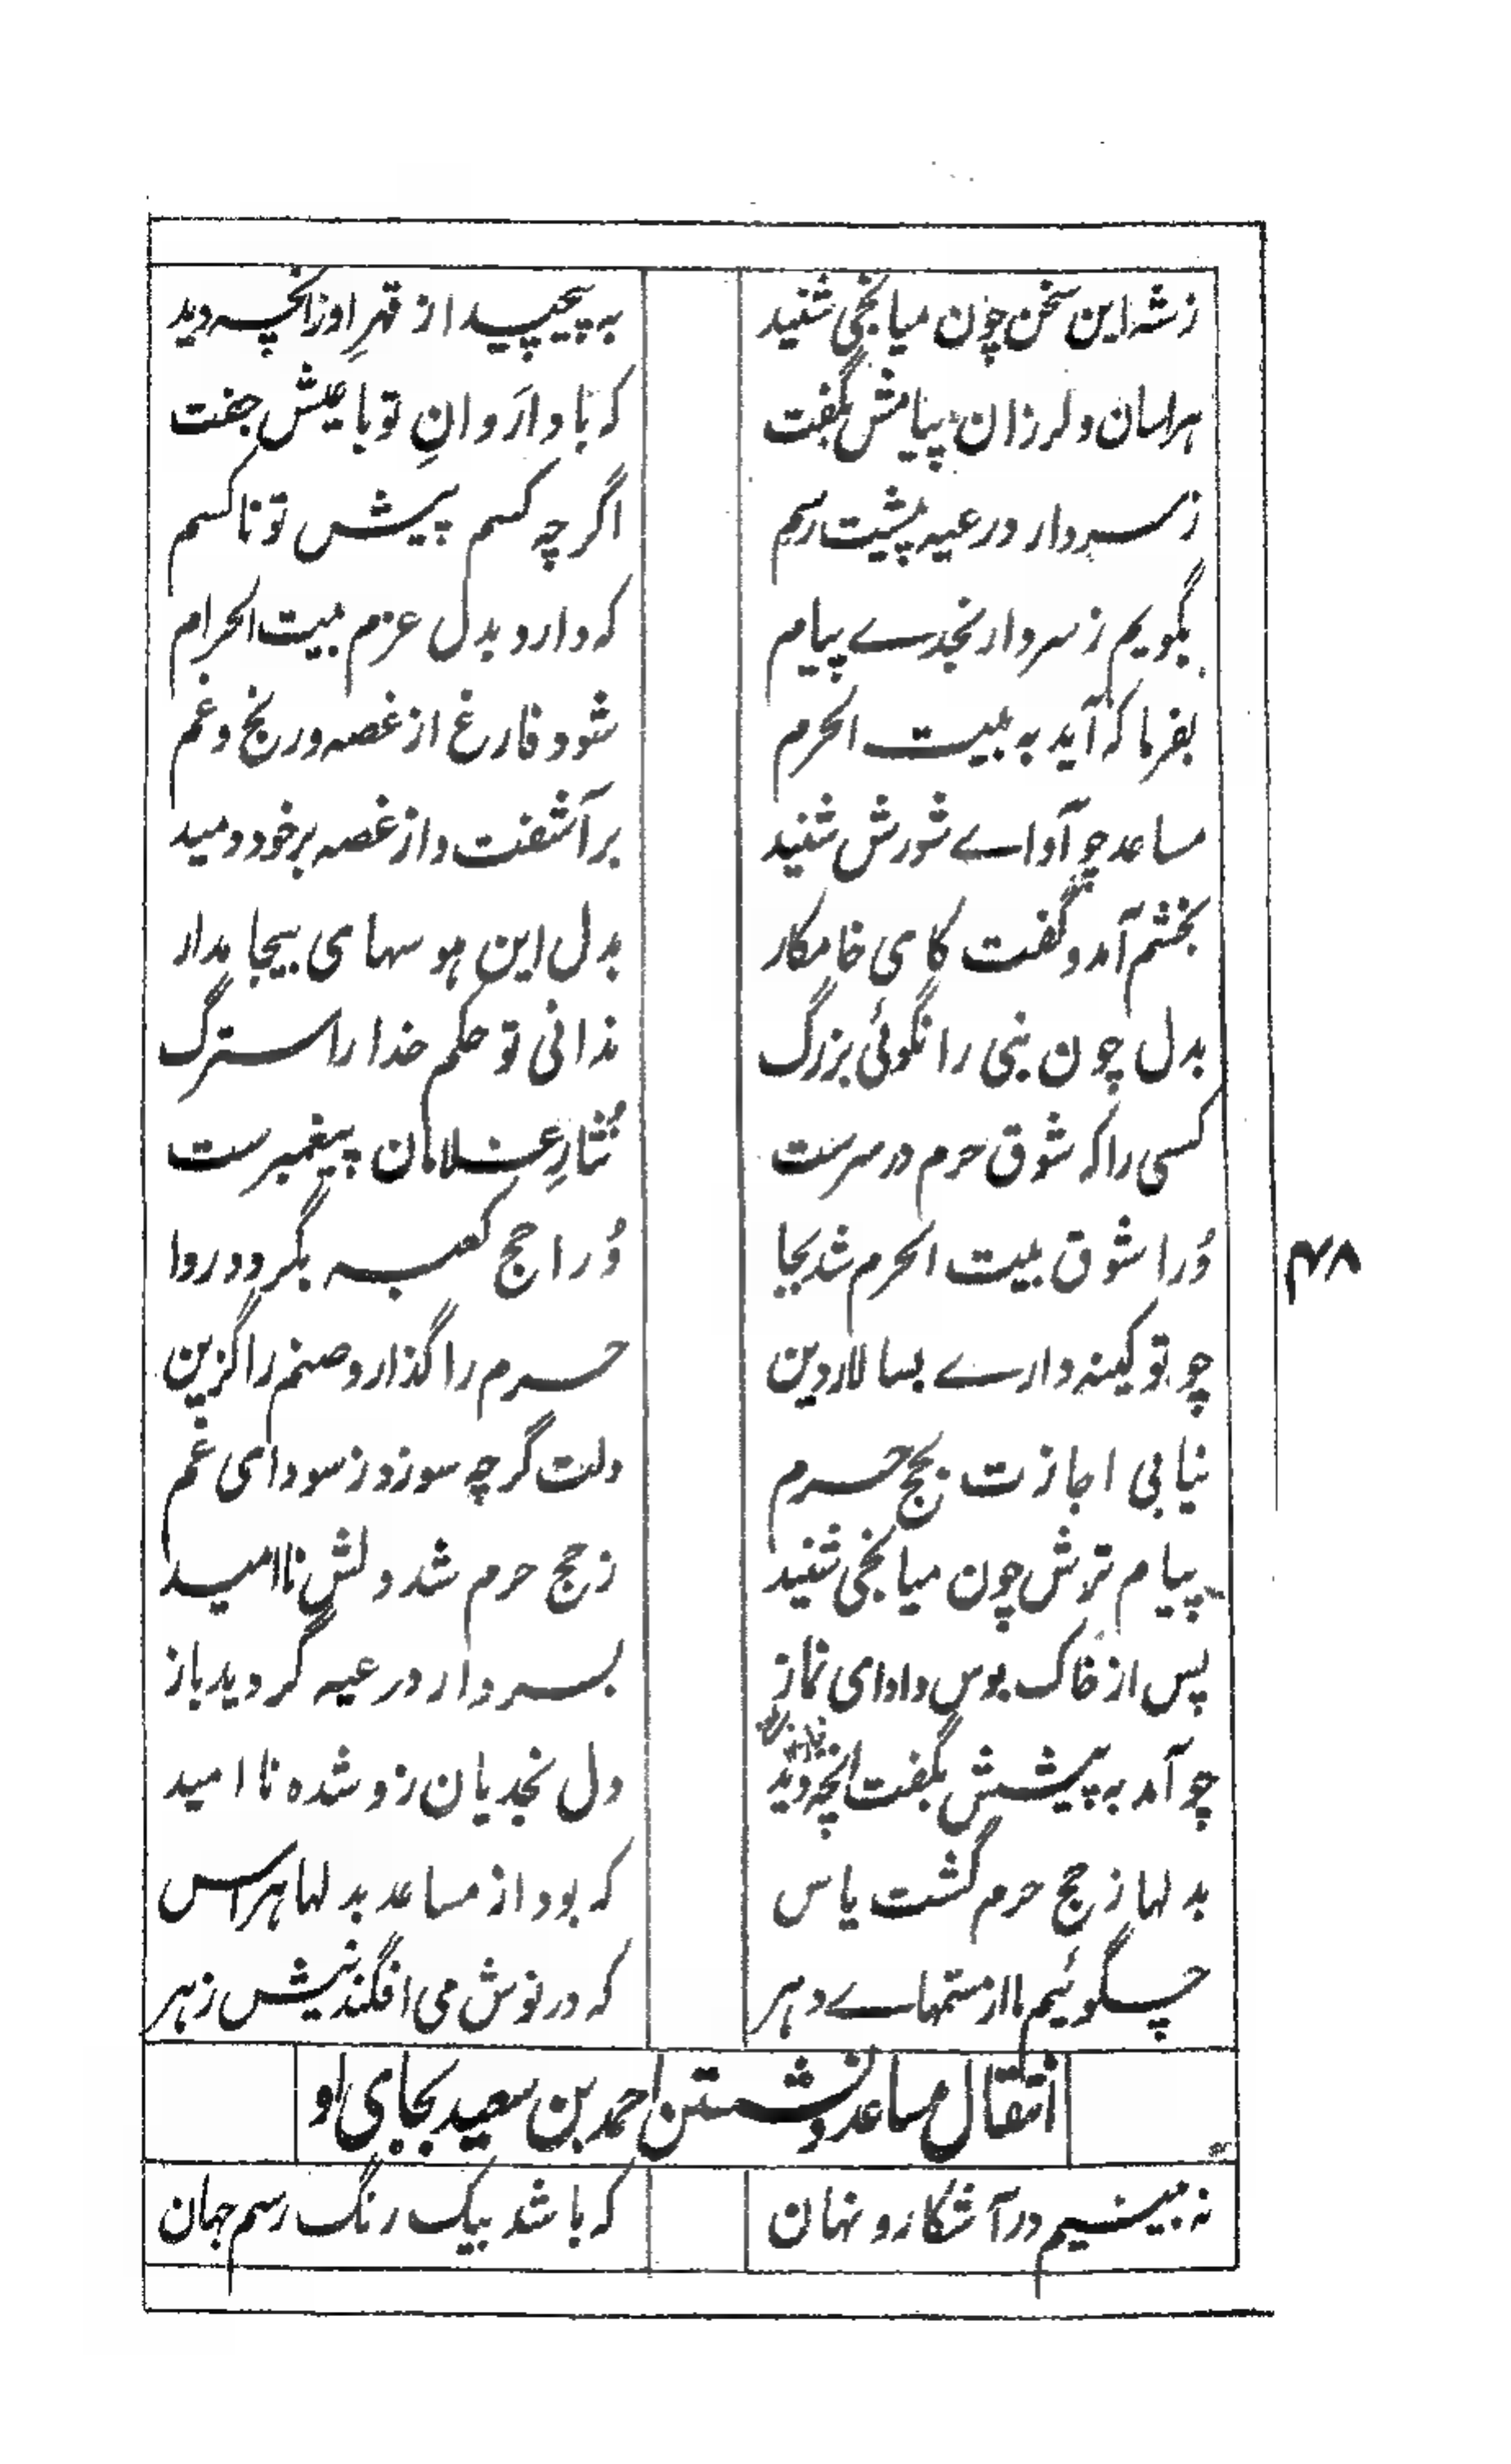 ز شه این سخن چون میانجی شنید به پیچید از قهرِ او زانچه دید
هراسان و لرزان پیامش بگفت که بادا رَوانِ تو با عیش جفت
ز سردار درعیه پیشت رسم اگرچه کسم پیش تو ناکسم
بگویم ز سردار نجدے پیام که دارد بدل عزم بیت الحرام
بفرما که آید به بیت الحرم شود فارغ از غصه و رنج و غم
مساعد چو آواے شورش شنید برآشفت و از غصه بر خود دمید
بخشم آمد و گفت کای خامکار بدل این هوسهای بیجا مدار
بدل چون نبی را نگوئی بزرگ ندانی تو حکم خدا را سترگ
کسی را که شوق حرم در سرست نثارِ غلامان پیغمبرست
وُرا شوق بیت الحرم شد بجا وُرا حج کعبه بگردد روا
چو تو کینه دارے بسالار دین حرم را گذار و صنم را گزین
نیابی اجازت بحج حرم دلت گرچه سوزد ز سودای غم
پیام ترش چون میانجی شنید ز حج حرم شد دلش ناامید
پس از خاک بوس و ادای نماز بسردار درعیه گردید باز
چو آمد به پیشش بگفت انچه دید دل نجدیان زو شده ناامید
بدلها ز حج حرم گشت یاس که بود از مساعد بدلها هراس
چسگوئیم ما از ستمهاے دهر که در نوش می افگند نیش زهر
انتقال مساعد و نشستن احمد بن سعید بجای او
نه بینیم در آشکار و نهان که باشد بیک رنگ رسم جهان
۴۸